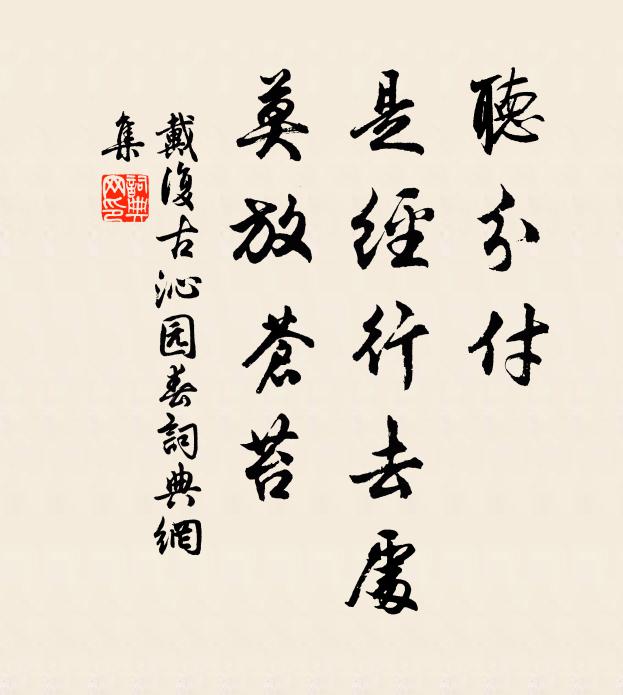 聽分付
是經行去處
莫放蒼苔
戴復古沁园春詞典網
集
詞典
网印